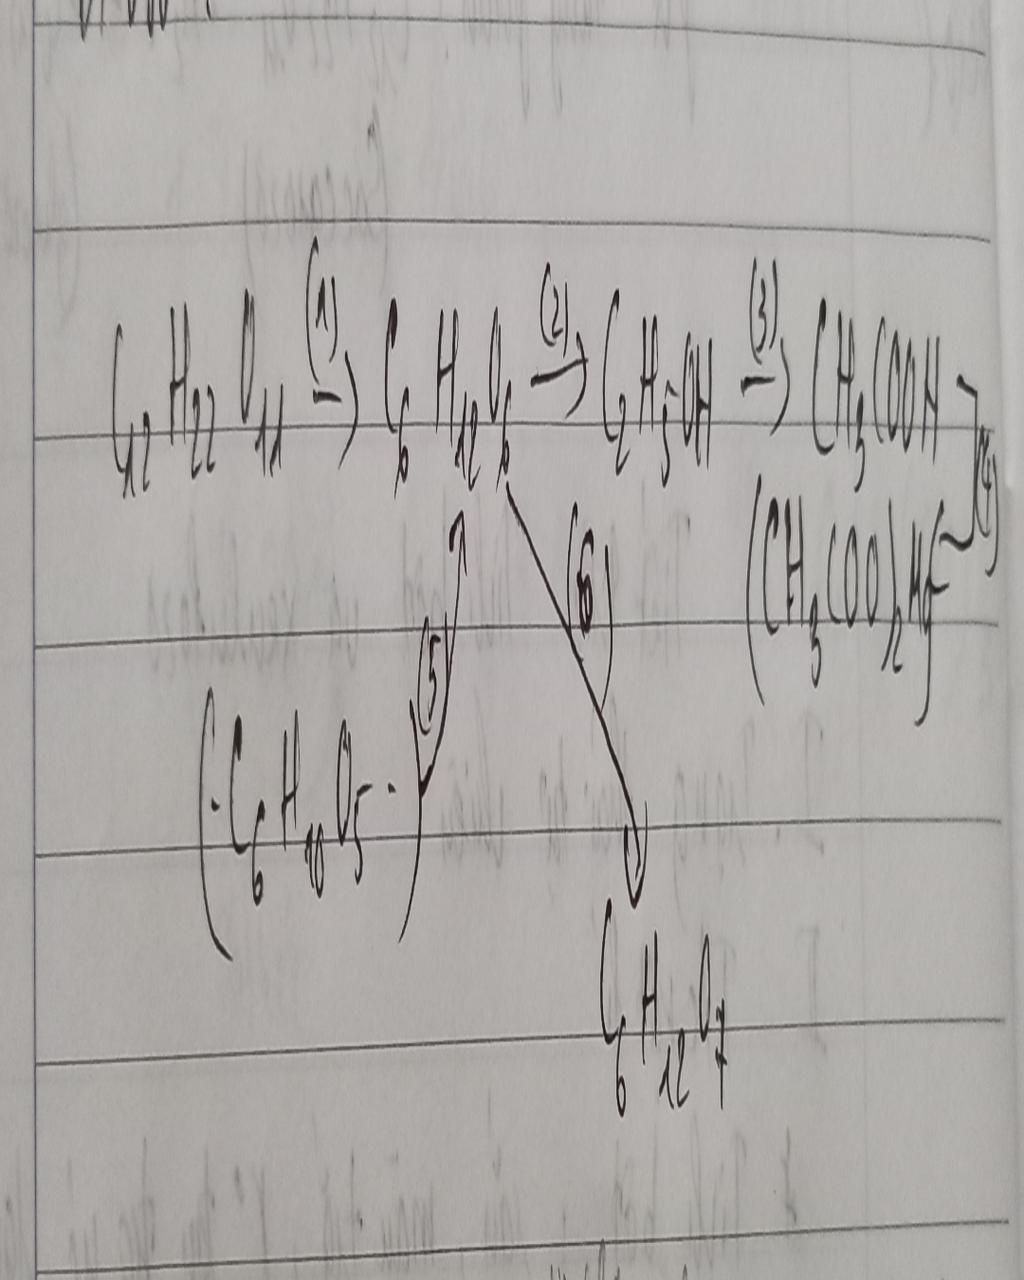 (1) (2) (3)
C12H22O11 → C6H12O6 → C2H5OH → CH3COOH
(4)
(CH3COO)2Mg
(5) (6)
(-C6H10O5-)
C6H12O7